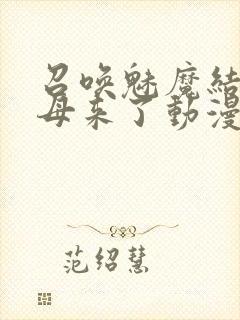 召唤魅魔结
母来了動漫
范绍慧